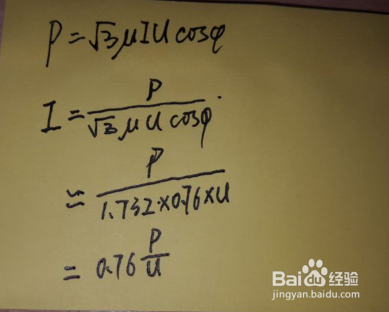 P=√3μIUcosφ
I=P/(√3μUcosφ)
≈P/(1.732×0.76×U)
=0.76P/U
Baidu经验
jingyan.baidu.com